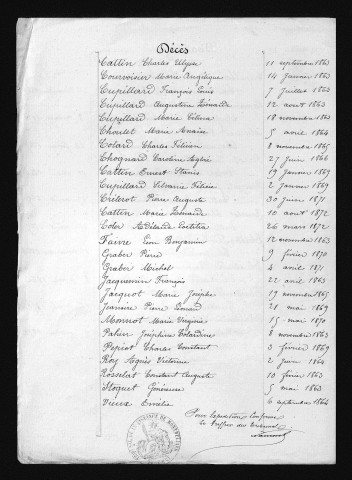 Décès
Cattin Charles Ulysse 11 septembre 1863
Courvoisier Marie Angélique 14 janvier 1863
Cupillard François Louis 7 juillet 1863
Cupillard Augustine 12 aout 1863
Cupillard Marie Célina 18 novembre 1863
Choulet Marie 5 avril 1864
Colard Charles Félicien 8 novembre 1865
Chognard Caroline Aglaé 27 juin 1866
Cattin Ernest Stanis 19 janvier 1869
Cupillard Silvanie Félicie 2 janvier 1869
Pierre Auguste 30 juin 1871
Cattin Marie 10 aout 1872
Adélaïde 24 mars 1872
Favre Léon Benjamin 12 novembre 1863
Graber Pierre 9 février 1870
Graber Michel 4 avril 1871
Jacquemin François 22 avril 1863
Jacquot Marie Josèphe 19 novembre 1865
Pierre 21 mai 1869
Monnot Marie Virginie 15 mai 1870
Joséphine 8 novembre 1863
Pepiot Charles Constant 3 février 1869
Roy Agnès Victorine 2 juin 1864
Rosselat Constant Auguste 10 février 1863
Stoquet Généreuse 5 mai 1863
Vieux Emélie 6 septembre 1864
Pour Expédition Conforme
Le Greffier du Tribunal